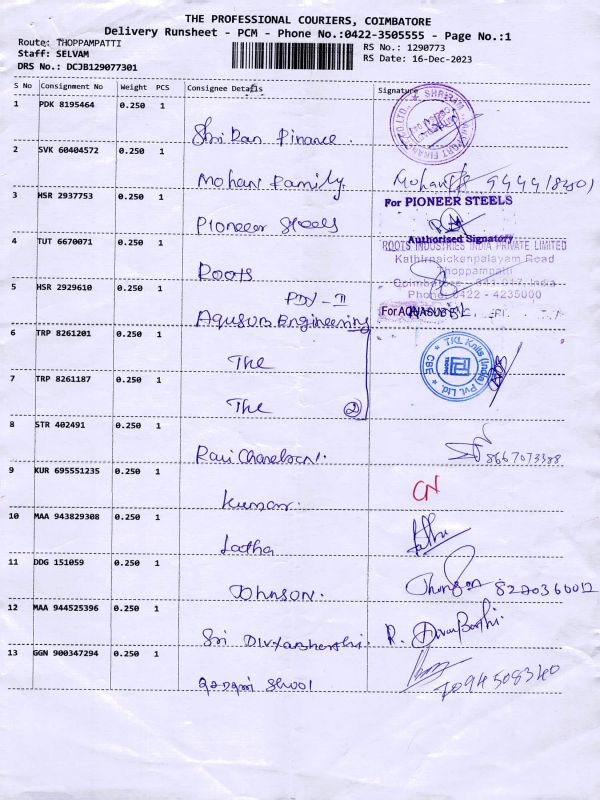 THE PROFESSIONAL COURIERS, COIMBATORE
Delivery Runsheet - PCM - Phone No.:0422-3505555 - Page No.:1
Route: THOPPAMPATTI
Staff: SELVAM
DRS No.: DCJB129077301
RS No.: 1290773
RS Date: 16-Dec-2023
S No Consignment No Weight PCS Consignee Details Signature
1 PDK 8195464 0.250 1
Finance
2 SVK 60404572 0.250 1
Mohan Family
Mohan
3 HSR 2937753 0.250 1
Pioneer Steels
For PIONEER STEELS
Authorised Signatory
4 TUT 6670071 0.250 1
Roots
ROOTS INDUSTRIES INDIA PRIVATE LIMITED
Kathirnaickenpalayam Road
Thoppampatti
Coimbatore - 641 017. India
Phone: 0422 - 4235000
5 HSR 2929610 0.250 1
PDY-II
Aqusub Engineering
For AQUASUB
6 TRP 8261201 0.250 1
The
TKL Knits (India) Pvt. Ltd.
CBE
7 TRP 8261187 0.250 1
The 2
8 STR 402491 0.250 1
Ravi Chandran.
8667073388
9 KUR 695551235 0.250 1
Kumar.
CN
10 MAA 943829308 0.250 1
Latha
Latha
11 DDG 151059 0.250 1
Johnson.
8220360012
12 MAA 944525396 0.250 1
Sri
R.
13 GGN 900347294 0.250 1
7094508340